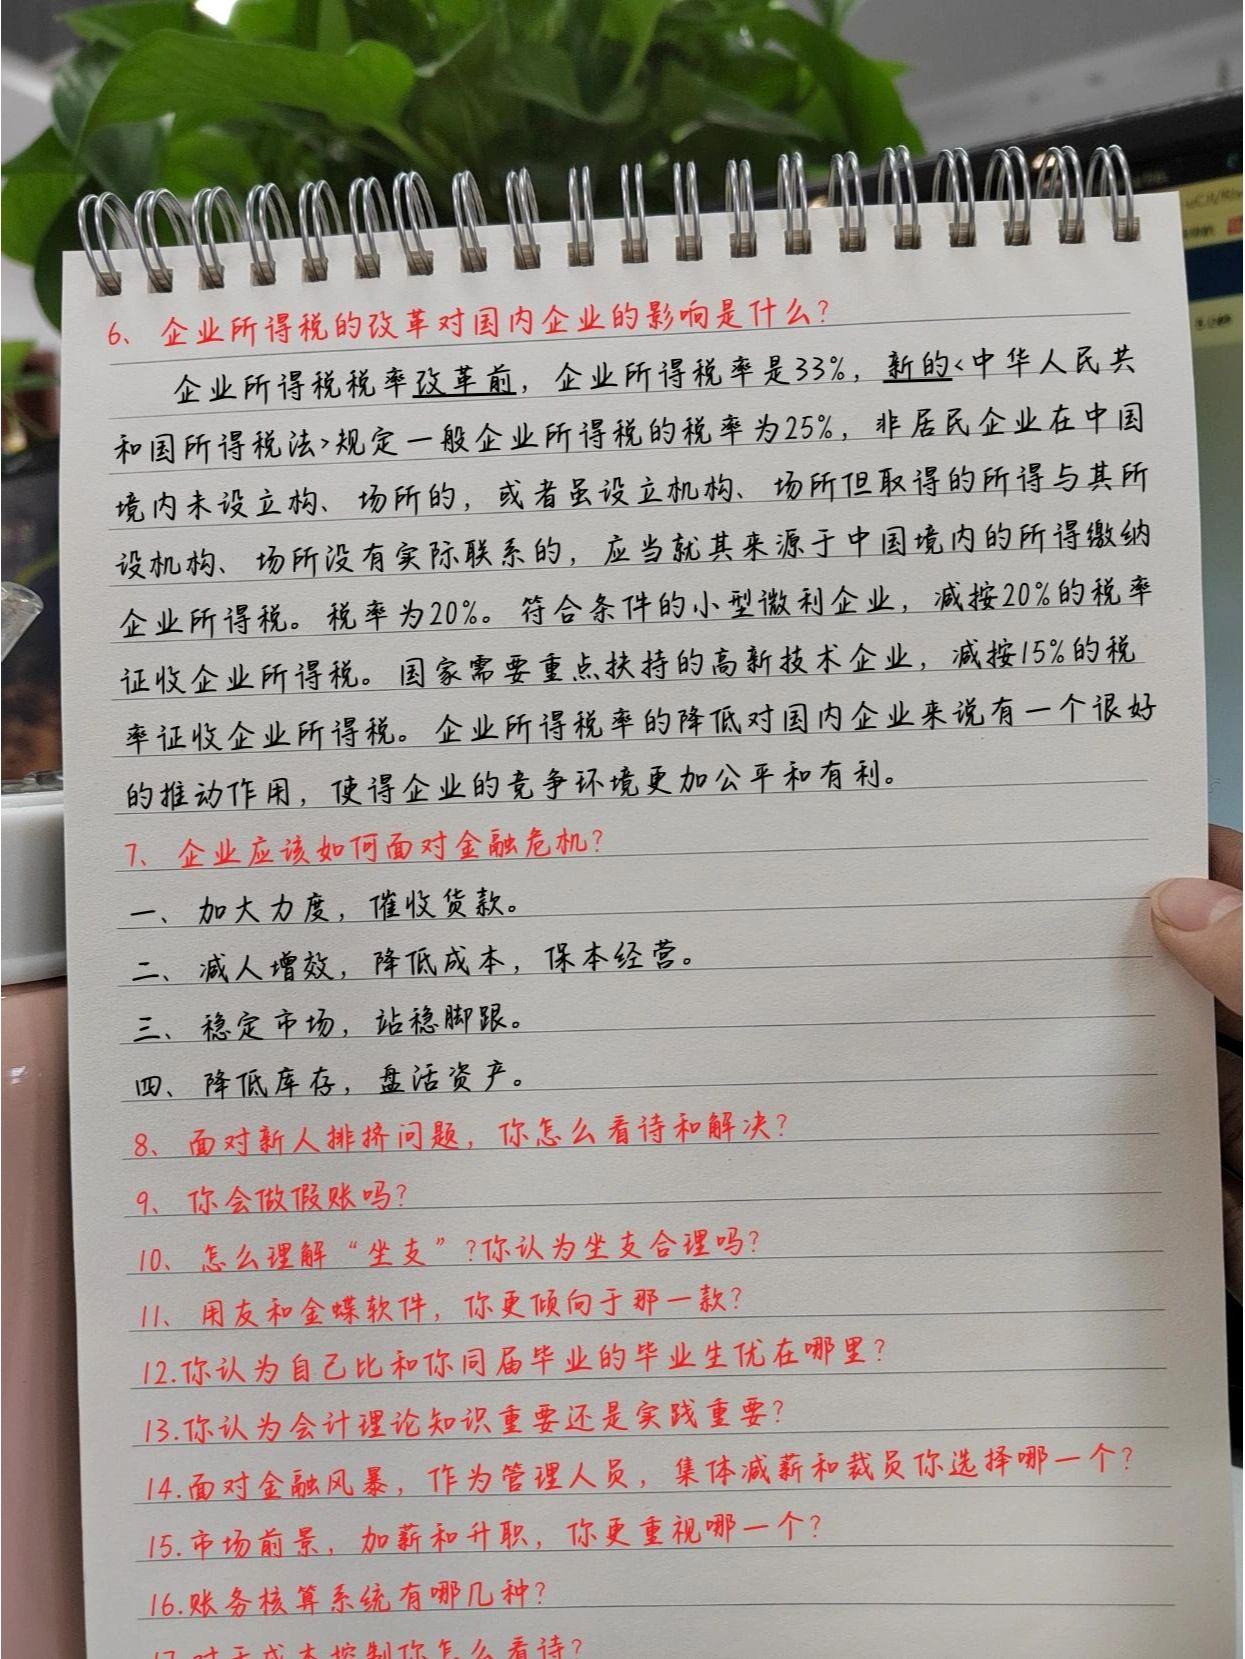 6、企业所得税的改革对国内企业的影响是什么?
企业所得税税率改革前，企业所得税率是33%，新的<中华人民共
和国所得税法>规定一般企业所得税的税率为25%，非居民企业在中国
境内未设立构、场所的，或者虽设立机构、场所但取得的所得与其所
设机构、场所没有实际联系的，应当就其来源于中国境内的所得缴纳
企业所得税。税率为20%。符合条件的小型微利企业，减按20%的税率
证收企业所得税。国家需要重点扶持的高新技术企业，减按15%的税
率证收企业所得税。企业所得税率的降低对国内企业来说有一个很好
的推动作用，使得企业的竞争环境更加公平和有利。
7、企业应该如何面对金融危机?
一、加大力度，催收货款。
二、减人增效，降低成本，保本经营。
三、稳定市场，站稳脚跟。
四、降低库存，盘活资产。
8、面对新人排挤问题，你怎么看待和解决?
9、你会做假账吗?
10、怎么理解“坐支”?你认为坐支合理吗?
11、用友和金蝶软件，你更倾向于那一款?
12.你认为自己比和你同届毕业的毕业生优在哪里?
13.你认为会计理论知识重要还是实践重要?
14.面对金融风暴，作为管理人员，集体减薪和裁员你选择哪一个?
15.市场前景，加薪和升职，你更重视哪一个?
16.账务核算系统有哪几种?
17.对于成本控制你怎么看待?